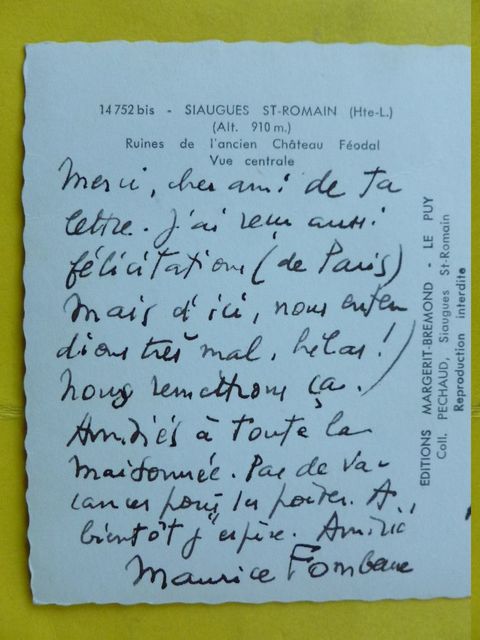 14 752 bis - SIAUGUES ST-ROMAIN (Hte-L.)
(Alt. 910 m.)
Ruines de l'ancien Château Féodal
Vue centrale
Merci, cher ami de ta
lettre. J'ai reçu aussi
félicitations (de Paris)
Mais d'ici, nous enten
dions très mal, hélas!
Nous remettrons ça.)
Amitiés à toute la
maisonnée. Pas de va-
cances pour les poètes. A
bientôt j'espère. Amitié
Maurice Fombeure
EDITIONS MARGERIT-BREMOND - LE PUY
Coll. PECHAUD, Siaugues St-Romain
Reproduction interdite